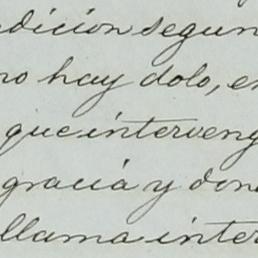 dición segun
no hay dolo, e
que interveng
gracia y don
llama inter